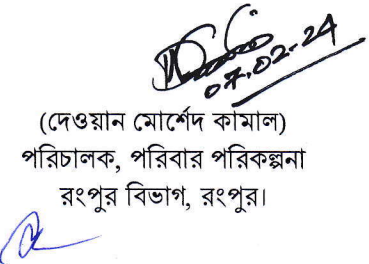 07.02.24
(দেওয়ান মোর্শেদ কামাল)
পরিচালক, পরিবার পরিকল্পনা
রংপুর বিভাগ, রংপুর।